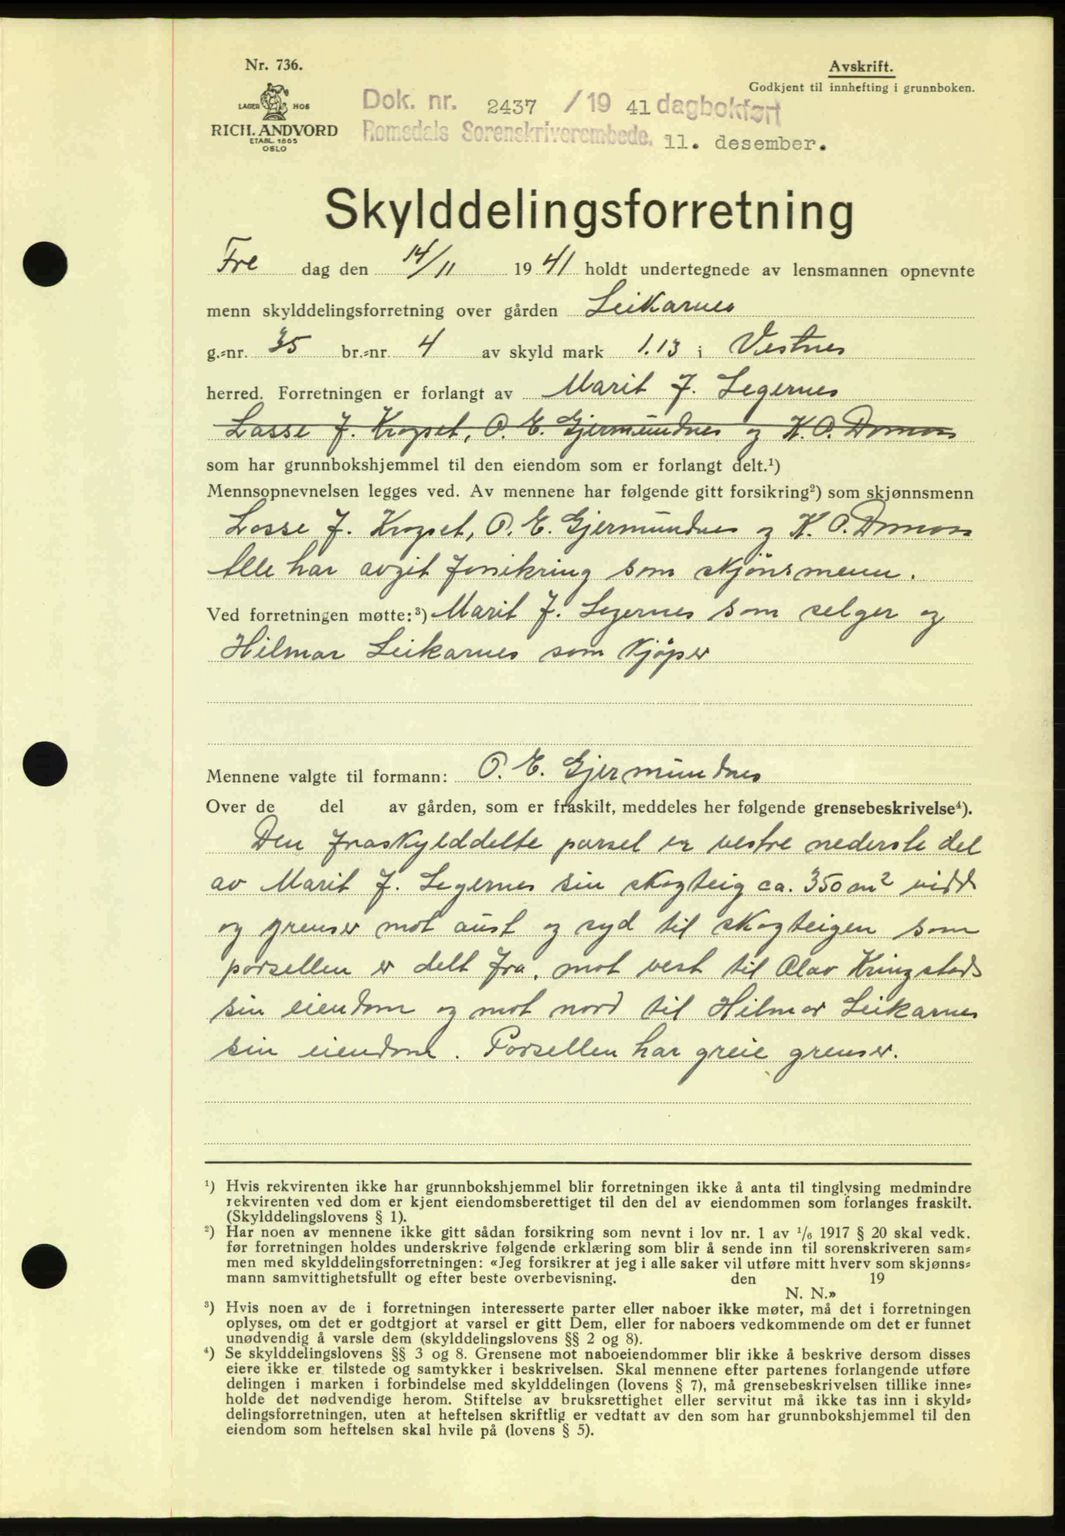 Nr. 736.
LAGER HOS
RICH. ANDVORD
ETABL. 1865
OSLO
Avskrift.
Godkjent til innhefting i grunnboken.
Dok. nr. 2437 /19 41 dagbokført
Romsdals Sorenskriverembede. 11. desember.
Skylddelingsforretning
Fre dag den 14/11 1941 holdt undertegnede av lensmannen opnevnte
menn skylddelingsforretning over gården Leikarnes
g.=nr. 35 br.=nr. 4 av skyld mark 1.13 i Vestnes
herred. Forretningen er forlangt av Marit J. Legernes
Lasse J. Krogset, O. E. Gjermundnes og K. O. Domaas
som har grunnbokshjemmel til den eiendom som er forlangt delt.¹)
Mennsopnevnelsen legges ved. Av mennene har følgende gitt forsikring²) som skjønnsmenn
Lasse J. Krogset, O. E. Gjermundnes og K. O. Domaas
Alle har avgit forsikring som skjönsmenn.
Ved forretningen møtte:³) Marit J. Legernes som selger og
Hilmar Leikarnes som kjöper
Mennene valgte til formann: O. E. Gjermundnes
Over de del av gården, som er fraskilt, meddeles her følgende grensebeskrivelse⁴).
Den fraskylddelte parsel er vestre nederste del
av Marit J. Legernes sin skogteig ca. 350 m² vidd
og grenser mot aust og syd til skogteigen som
parsellen er delt fra, mot vest til Olav Kringstads
sin eiendom og mot nord til Hilmar Leikarnes
sin eiendom. Parsellen har greie grenser.
¹) Hvis rekvirenten ikke har grunnbokshjemmel blir forretningen ikke å anta til tinglysing medmindre
rekvirenten ved dom er kjent eiendomsberettiget til den del av eiendommen som forlanges fraskilt.
(Skylddelingslovens § 1).
²) Har noen av mennene ikke gitt sådan forsikring som nevnt i lov nr. 1 av ¹/₆ 1917 § 20 skal vedk.
før forretningen holdes underskrive følgende erklæring som blir å sende inn til sorenskriveren sam=
men med skylddelingsforretningen: «Jeg forsikrer at jeg i alle saker vil utføre mitt hverv som skjønns=
mann samvittighetsfullt og efter beste overbevisning. den 19
N. N.»
³) Hvis noen av de i forretningen interesserte parter eller naboer ikke møter, må det i forretningen
oplyses, om det er godtgjort at varsel er gitt Dem, eller for naboers vedkommende om det er funnet
unødvendig å varsle dem (skylddelingslovens §§ 2 og 8).
⁴) Se skylddelingslovens §§ 3 og 8. Grensene mot naboeiendommer blir ikke å beskrive dersom disses
eiere ikke er tilstede og samtykker i beskrivelsen. Skal mennene efter partenes forlangende utføre
delingen i marken i forbindelse med skylddelingen (lovens § 7), må grensebeskrivelsen tillike inne=
holde det nødvendige herom. Stiftelse av bruksrettighet eller servitut må ikke tas inn i skyld=
delingsforretningen, uten at heftelsen skriftlig er vedtatt av den som har grunnbokshjemmel til den
eiendom som heftelsen skal hvile på (lovens § 5).